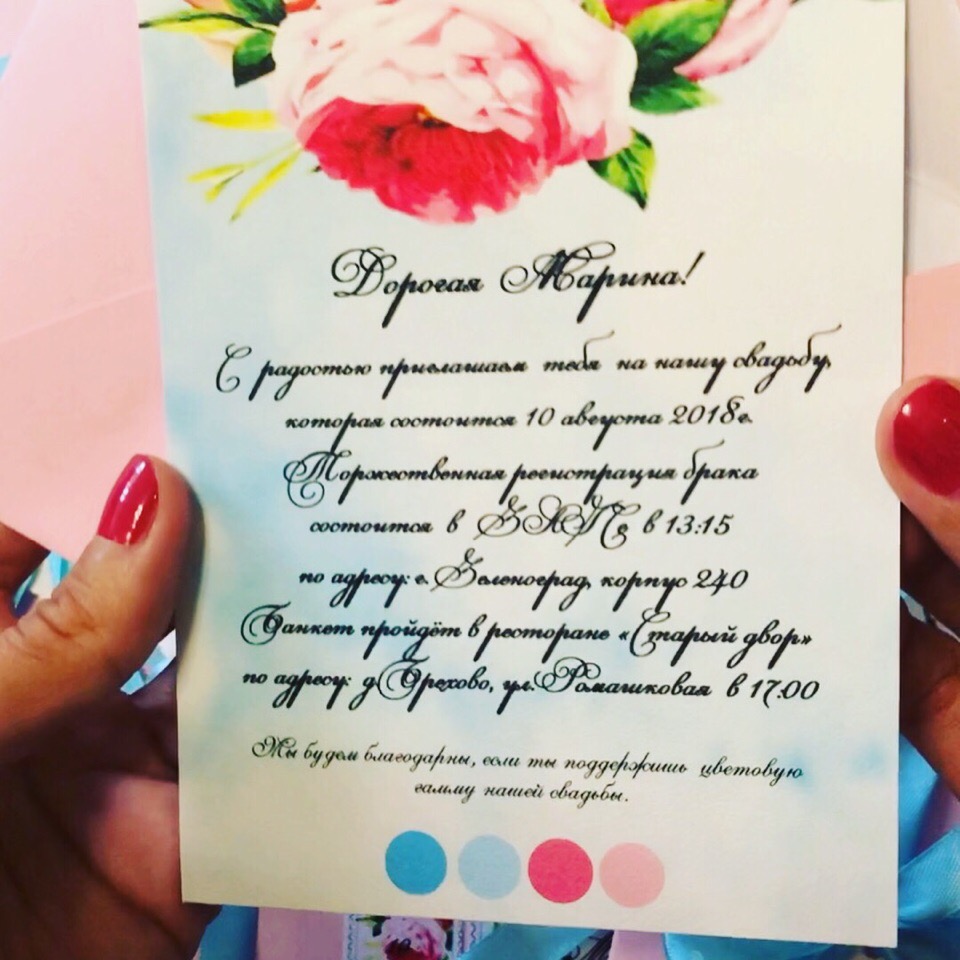 Дорогая Марина!
С радостью приглашаем тебя на нашу свадьбу,
которая состоится 10 августа 2018г.
Торжественная регистрация брака
состоится в ЗАГСе в 13:15
по адресу: г. Зеленоград, корпус 240
Банкет пройдёт в ресторане «Старый двор»
по адресу: д. Брехово, ул. Ромашковая в 17:00
Мы будем благодарны, если ты поддержишь цветовую
гамму нашей свадьбы.